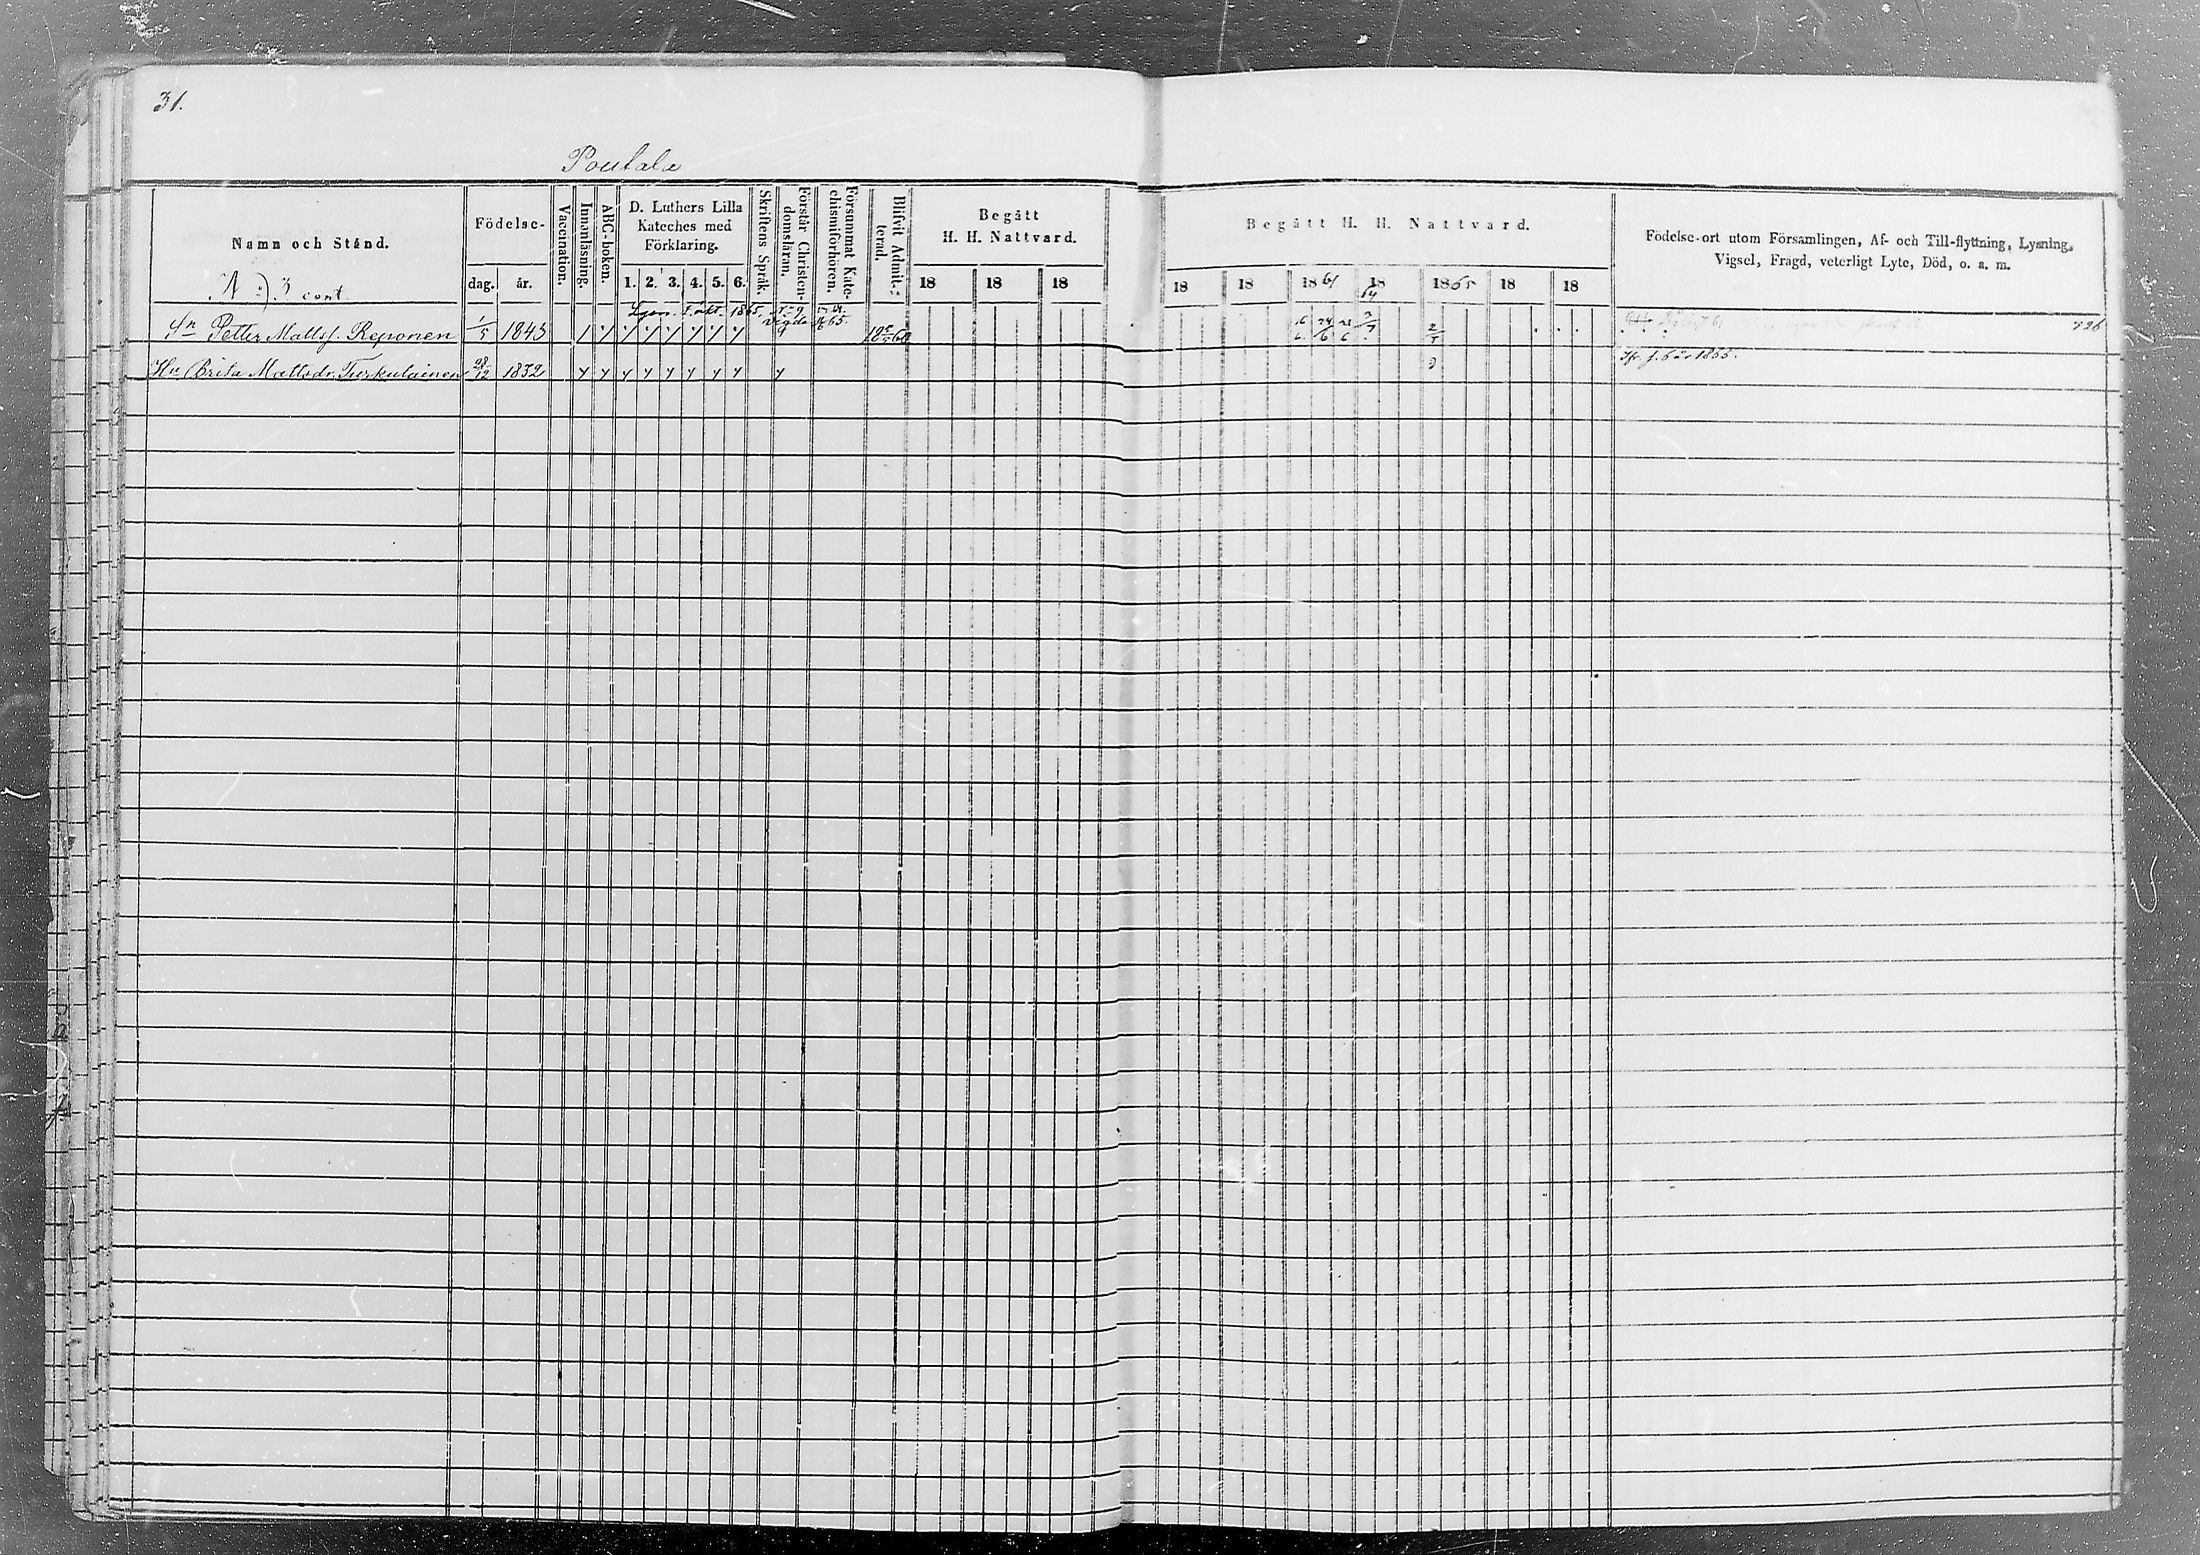 31.
Poutala
Namn och Stånd.
Födelse-
dag.
år.
Vaccination.
Innanläsning.
ABC-boken.
D. Luthers Lilla
Kateches med
Förklaring.
1. 2. 3. 4. 5. 6.
Skriftens Språk.
Förstår Christen-
domsläran.
Försummat Kate-
chismiförhören.
Blifvit Admit-
terad.
Begått
H. H. Nattvard.
18 18 18
Begått H. H. Nattvard.
18 18 1861 18 64 1865 18 18
Födelse-ort utom Församlingen, Af- och Till-flyttning, Lysning,
Vigsel, Frägd, veterligt Lyte, Död, o. a. m.
No 3 cont.
1865
Petter Matts. Reponen 1/5 1843
726
Hu Brita Mattsdr. Turkulainen 28/12 1832
1865.